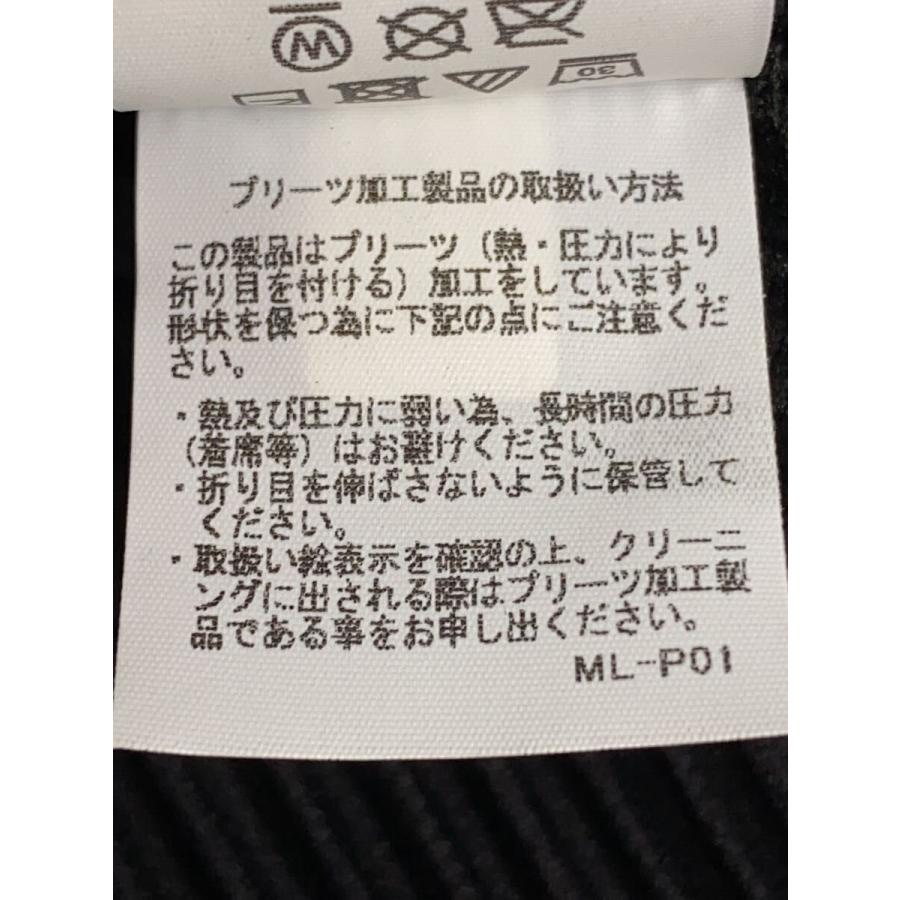 W
30
プリーツ加工製品の取扱い方法
この製品はプリーツ（熱・圧力により
折り目を付ける）加工をしています。
形状を保つ為に下記の点にご注意くだ
さい。
・熱及び圧力に弱い為、長時間の圧力
（着席等）はお避けください。
・折り目を伸ばさないように保管して
ください。
・取扱い絵表示を確認の上、クリーニ
ングに出される際はプリーツ加工製
品である事をお申し出ください。
ML-P01